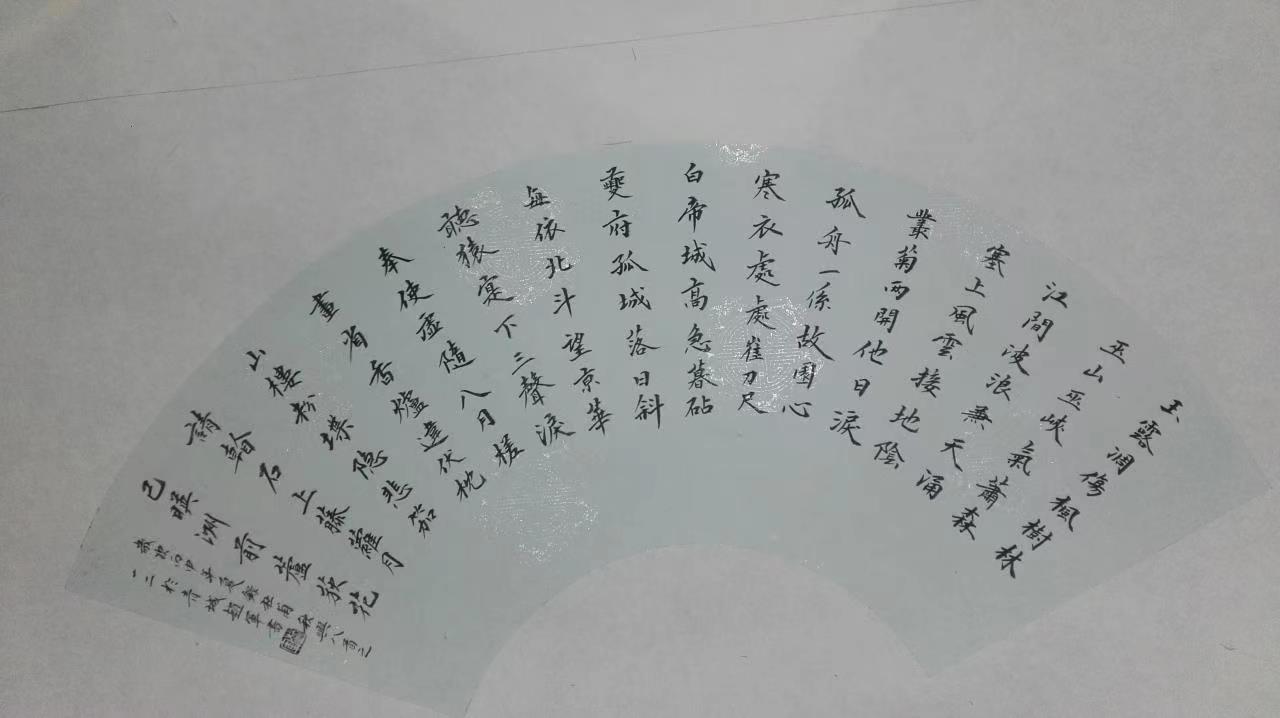 玉露凋傷楓樹林
巫山巫峽氣蕭森
江間波浪兼天涌
塞上風雲接地陰
叢菊兩開他日淚
孤舟一係故園心
寒衣處處崔刀尺
白帝城高急暮砧
夔府孤城落日斜
每依北斗望京華
聽猿寔下三聲淚
奉使虛隨八月槎
畫省香爐違伏枕
山樓粉堞隐悲笳
請看石上藤蘿月
已暎洲前蘆荻花
歲次丙申年夏錄杜甫秋興八首之
一二於青城趙軍書